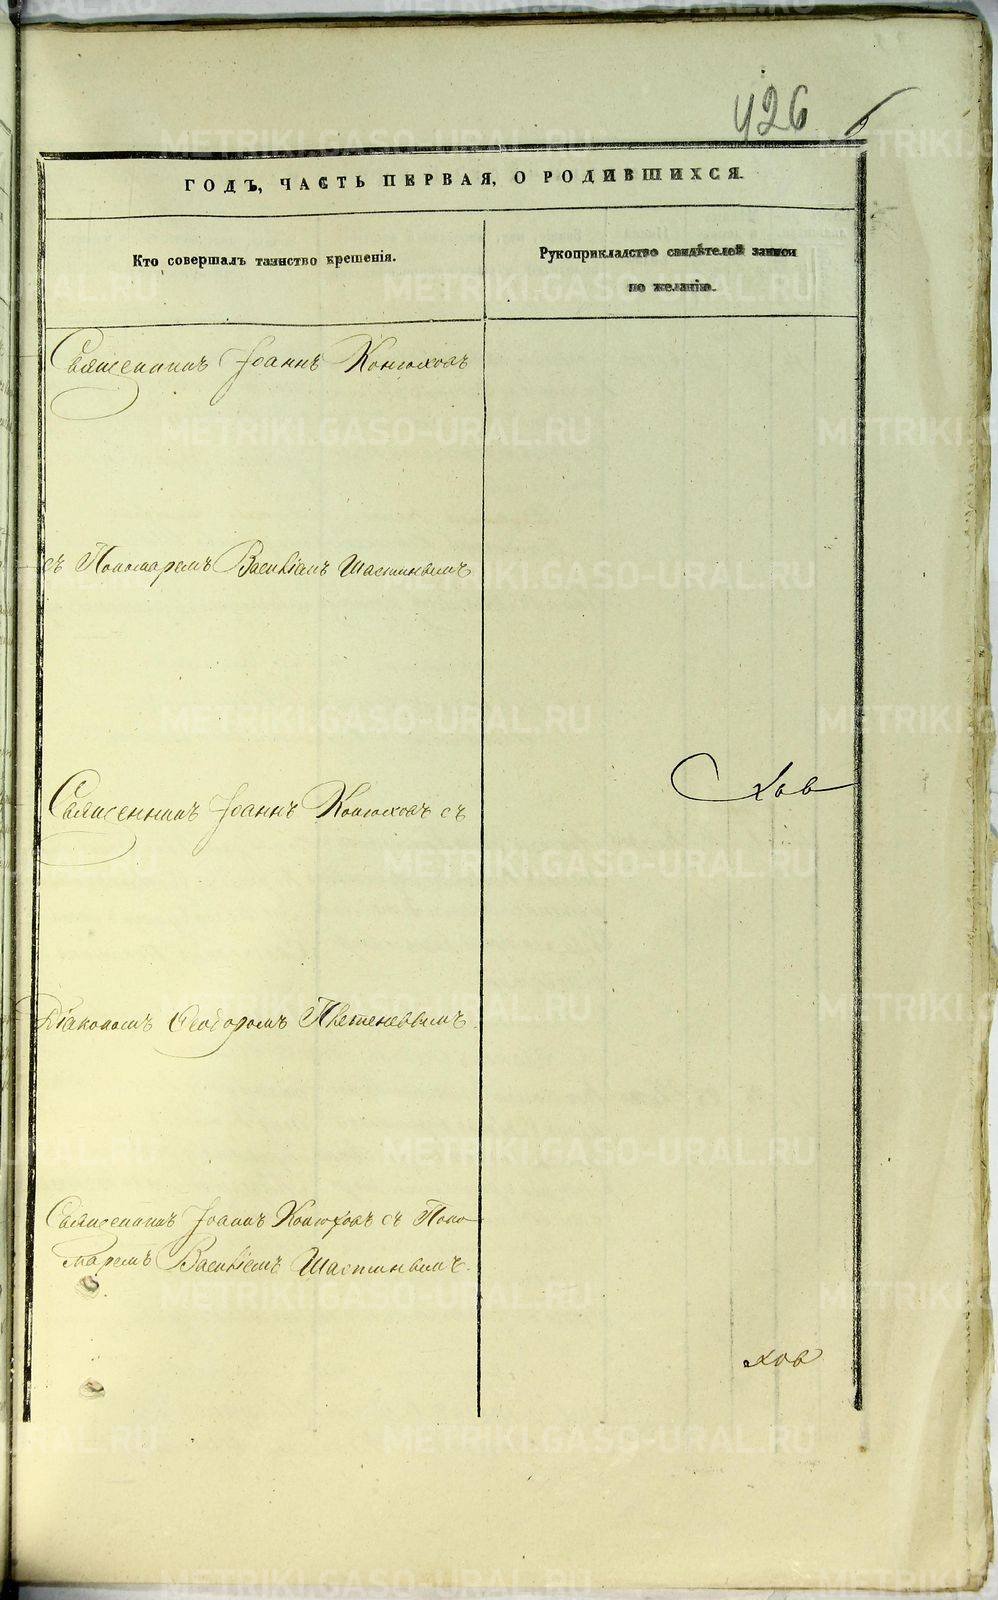 426
ГОДЪ, ЧАСТЬ ПЕРВАЯ, О РОДИВШИХСЯ.
Кто совершалъ таинство крещенія.
Рукоприкладство свидѣтелей записи
по желанію.
Священникъ Іоаннъ Конюховъ
съ Пономаремъ Василіемъ Шастинымъ
Священникъ Іоаннъ Конюховъ съ
ховъ
Діакономъ Ѳеодоромъ
Священникъ Іоаннъ Конюховъ съ Поно
маремъ Василіемъ Шастинымъ.
ховъ
METRIKI.GASO-URAL.RU